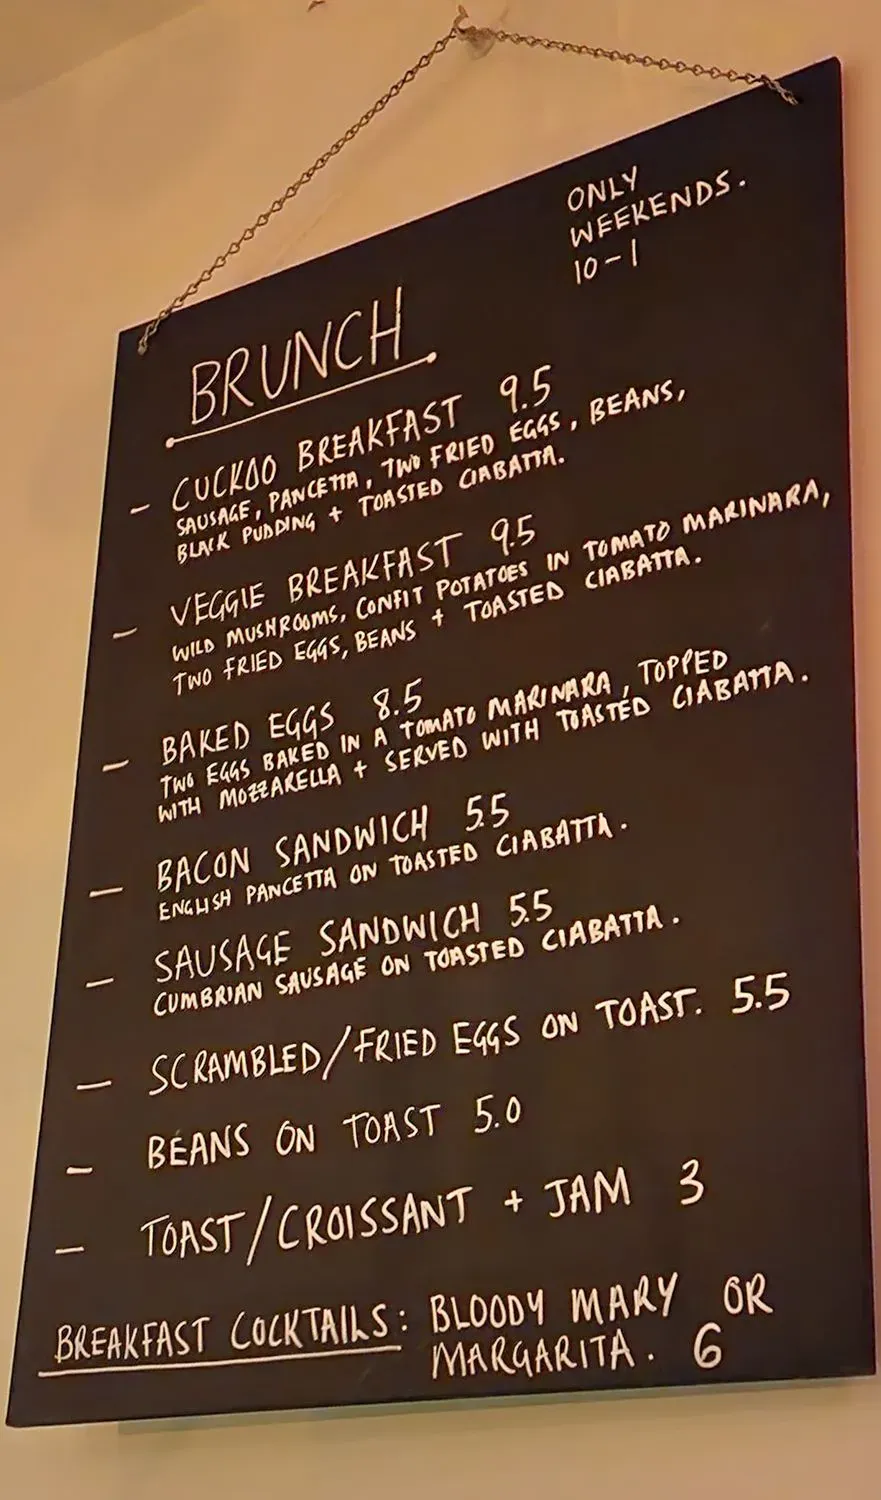 ONLY
WEEKENDS.
10-1
BRUNCH
- CUCKOO BREAKFAST 9.5
SAUSAGE, PANCETTA, TWO FRIED EGGS, BEANS,
BLACK PUDDING + TOASTED CIABATTA.
- VEGGIE BREAKFAST 9.5
WILD MUSHROOMS, CONFIT POTATOES IN TOMATO MARINARA,
TWO FRIED EGGS, BEANS + TOASTED CIABATTA.
- BAKED EGGS 8.5
TWO EGGS BAKED IN A TOMATO MARINARA, TOPPED
WITH MOZZARELLA + SERVED WITH TOASTED CIABATTA.
- BACON SANDWICH 5.5
ENGLISH PANCETTA ON TOASTED CIABATTA.
- SAUSAGE SANDWICH 5.5
CUMBRIAN SAUSAGE ON TOASTED CIABATTA.
- SCRAMBLED/FRIED EGGS ON TOAST. 5.5
- BEANS ON TOAST 5.0
- TOAST/CROISSANT + JAM 3
BREAKFAST COCKTAILS: BLOODY MARY OR
MARGARITA. 6